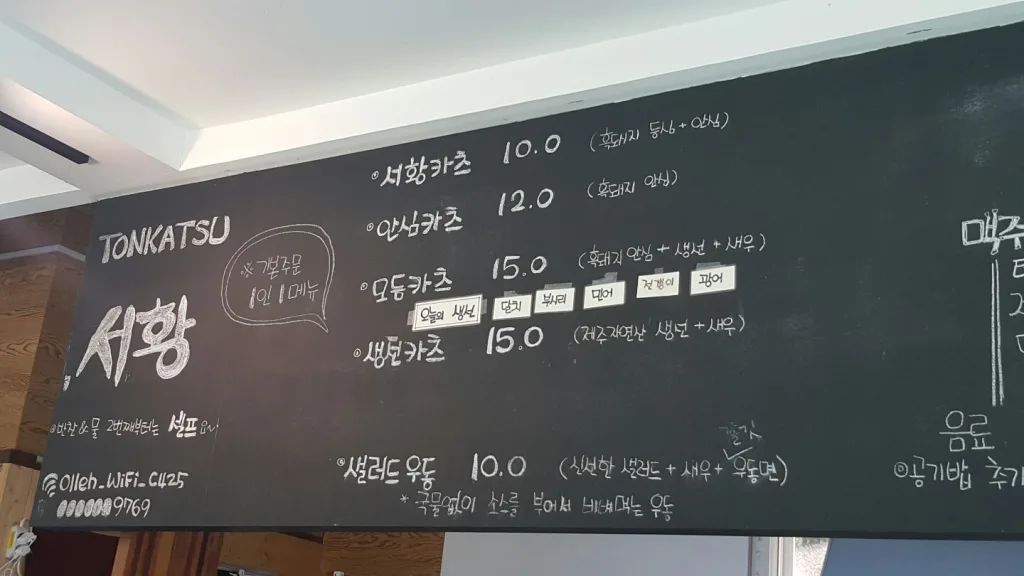 TONKATSU
서황
※ 기본주문
1인 1메뉴
반찬&물 2번째부터는 셀프요~
Olleh_WiFi_C425
9769
서황카츠 10.0 (흑돼지 등심 + 안심)
안심카츠 12.0 (흑돼지 안심)
모듬카츠 15.0 (흑돼지안심 + 생선 + 새우)
오늘의 생선 달고기 부시리 민어 전갱이 광어
생선카츠 15.0 (제주자연산 생선 + 새우)
샐러드우동 10.0 (신선한 샐러드 + 새우 + 우동면)
* 국물없이 소스를 부어서 비벼먹는 우동
맥주
음료
공기밥 추가